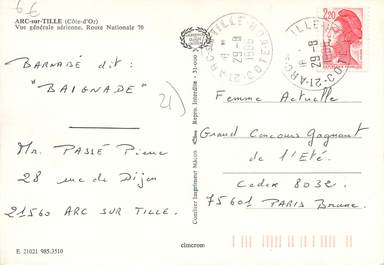 6€
ARC-sur-TILLE (Côte-d'Or)
Vue générale aérienne. Route Nationale 70
BARNABÉ dit :
"BAIGNADE"
21)
MR. PASSÉ Pierre
28 rue de Dijon
21560 ARC SUR TILLE.
E 21021 985.3510
Combier Imprimeur Mâcon
Repro. Interdite - 31-000
cimcrom
21-ARC TILLE
29-8
1986
COTE
21-ARC
TILLE
29-8
1986
COTE
2,20
Femme Actuelle
Grand Concours Gagnant
de l'Eté.
Cedex 8032.
75601 PARIS Brune.